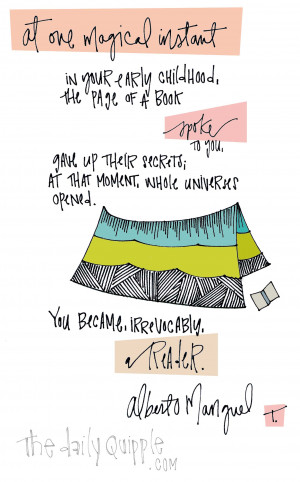 at one magical instant
in your early childhood,
the page of a book
spoke
to you,
gave up their secrets;
at that moment, whole universes
opened.
You became, irrevocably,
a reader.
Alberto Manguel
T.
the daily quipple
.com